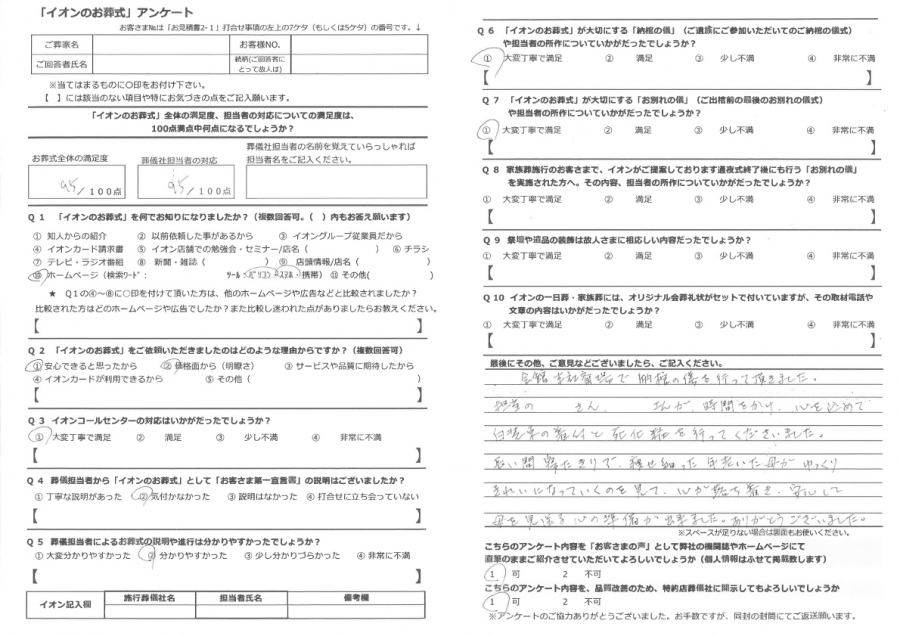 「イオンのお葬式」アンケート
お客さま№は「お見積書2-1」打合せ事項の左上の7ケタ(もしくは5ケタ)の番号です。↓
ご葬家名 お客様NO.
ご回答者氏名 続柄(ご回答者にとって故人は)
※当てはまるものに○印をお付け下さい。
【 】には該当のない項目や特にお気づきの点をご記入願います。
「イオンのお葬式」全体の満足度、担当者の対応についての満足度は、
100点満点中何点になるでしょうか?
お葬式全体の満足度 葬儀社担当者の対応
葬儀社担当者の名前を覚えていらっしゃれば
担当者名をご記入ください。
95/100点 95/100点
Q1 「イオンのお葬式」を何でお知りになりましたか?(複数回答可。( )内もお答え願います)
① 知人からの紹介 ② 以前依頼した事があるから ③ イオングループ従業員だから
④ イオンカード請求書 ⑤ イオン店舗での勉強会・セミナー/店名( ) ⑥ チラシ
⑦ テレビ・ラジオ番組 ⑧ 新聞・雑誌( ) ⑨ 店頭情報/店名( )
⑩ ホームページ(検索ワード: ツール:パソコン・スマホ・携帯) ⑪ その他( )
★ Q1の④~⑧に○印を付けて頂いた方は、他のホームページや広告などと比較されましたか?
比較された方はどのホームページや広告でしたか?また比較し迷われた点がありましたらお教えください。
【 】
Q2 「イオンのお葬式」をご依頼いただきましたのはどのような理由からですか?(複数回答可)
①安心できると思ったから ②価格面から(明瞭さ) ③ サービスや品質に期待したから
④ イオンカードが利用できるから ⑤ その他( )
【 】
Q3 イオンコールセンターの対応はいかがだったでしょうか?
① 大変丁寧で満足 ② 満足 ③ 少し不満 ④ 非常に不満
【 】
Q4 葬儀担当者から「イオンのお葬式」として「お客さま第一宣言書」の説明はございましたか?
① 丁寧な説明があった ②気付かなかった ③ 説明はなかった ④ 打合せに立ち会っていない
【 】
Q5 葬儀担当者によるお葬式の説明や進行は分かりやすかったでしょうか?
① 大変分かりやすかった ② 分かりやすかった ③ 少し分かりづらかった ④ 非常に不満
【 】
イオン記入欄 施行葬儀社名 担当者氏名 備考欄
Q6 「イオンのお葬式」が大切にする「納棺の儀」(ご遺族にご参加いただいてのご納棺の儀式)
や担当者の所作についていかがだったでしょうか?
① 大変丁寧で満足 ② 満足 ③ 少し不満 ④ 非常に不満
【 】
Q7 「イオンのお葬式」が大切にする「お別れの儀」(ご出棺前の最後のお別れの儀式)
や担当者の所作についていかがだったでしょうか?
① 大変丁寧で満足 ② 満足 ③ 少し不満 ④ 非常に不満
【 】
Q8 家族葬施行のお客さまで、イオンがご提案しております通夜式終了後にも行う「お別れの儀」
を実施された方へ。その内容、担当者の所作についていかがだったでしょうか?
① 大変丁寧で満足 ② 満足 ③ 少し不満 ④ 非常に不満
【 】
Q9 祭壇や遺品の装飾は故人さまに相応しい内容だったでしょうか?
① 大変丁寧で満足 ② 満足 ③ 少し不満 ④ 非常に不満
【 】
Q10 イオンの一日葬・家族葬には、オリジナル会葬礼状がセットで付いていますが、その取材電話や
文章の内容はいかがだったでしょうか?
① 大変丁寧で満足 ② 満足 ③ 少し不満 ④ 非常に不満
【 】
最後にその他、ご意見などございましたら、ご記入ください。
で納棺の儀を行って頂きました。
担当の さん、 さんが、時間をかけ、心を込めて
白装束の着付と死化粧を行ってくださいました。
長い間寝たきりで、痩せ細った年老いた母がゆっくり
きれいになっていくのを見て、心が落ち着き、安心して
母を見送る心の準備が出来ました。ありがとうございました。
※スペースが足りない場合は裏面もお使いください。
こちらのアンケート内容を「お客さまの声」として弊社の機関誌やホームページにて
直筆のままご紹介させていただいてよろしいでしょうか(個人情報はふせて掲載致します)
1 可 2 不可
こちらのアンケート内容を、品質改善のため、特約店葬儀社に開示してもよろしいでしょうか
1 可 2 不可
※アンケートのご協力ありがとうございました。お手数ですが、同封の封筒にてご返送願います。